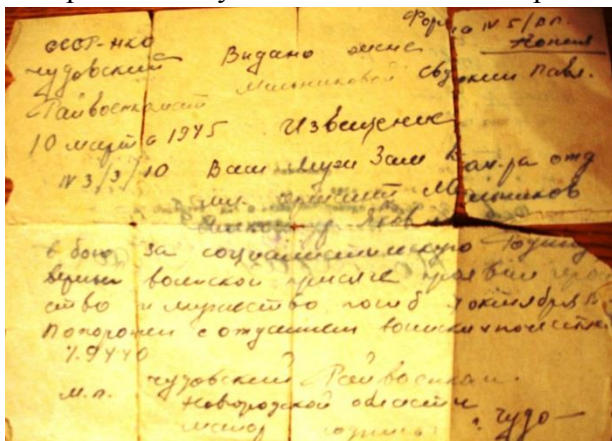 Форма № 5/вп.
Копия
СССР-НКО
Чудовский
Райвоенкомат
10 марта 1945
№ 3/3/10
Видано жене
Мельниковой Евдокии Павл.
Извещение
Ваш муж Зам Ком-ра отд
Мельников
в бою за социалистическую Родину
верный воинской присяге проявив герой
ство и мужество погиб октября
Похоронен с отданием воинских почестей
м.п. Чудовский Райвоенком.
Новгородской области
майор подпись